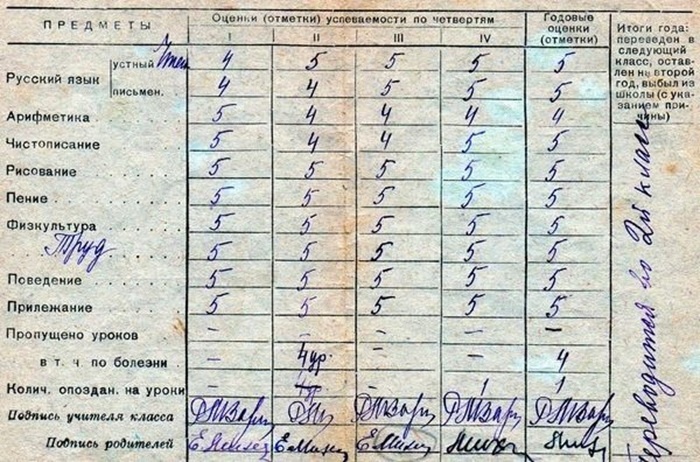 ПРЕДМЕТЫ
Оценки (отметки) успеваемости по четвертям
I II III IV
Годовые оценки (отметки)
Итоги года: переведен в следующий класс, оставлен на второй год, выбыл из школы (с указанием причины)
Русский язык
устный 4 5 5 5 5
письмен. 4 4 5 5 5
Арифметика 5 4 4 4 4
Чистописание 5 4 4 5 5
Рисование 5 5 5 5 5
Пение 5 5 5 5 5
Физкультура 5 5 5 5 5
Труд 5 5 5 5 5
Поведение 5 5 5 5 5
Прилежание 5 5 5 5 5
Пропущено уроков – – – – –
в т. ч. по болезни – 4 ур. – – 4
Колич. опоздан. на уроки – – – 1 1
Подпись учителя класса
Подпись родителей
Переводится во 2й класс